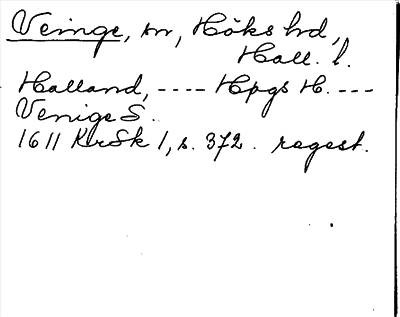 Veinge, sn, Höks hrd,
Hall. l.
Halland, ---- Hpgs H. ---
Venige S.
1611 KrSk 1, s. 372. regest.